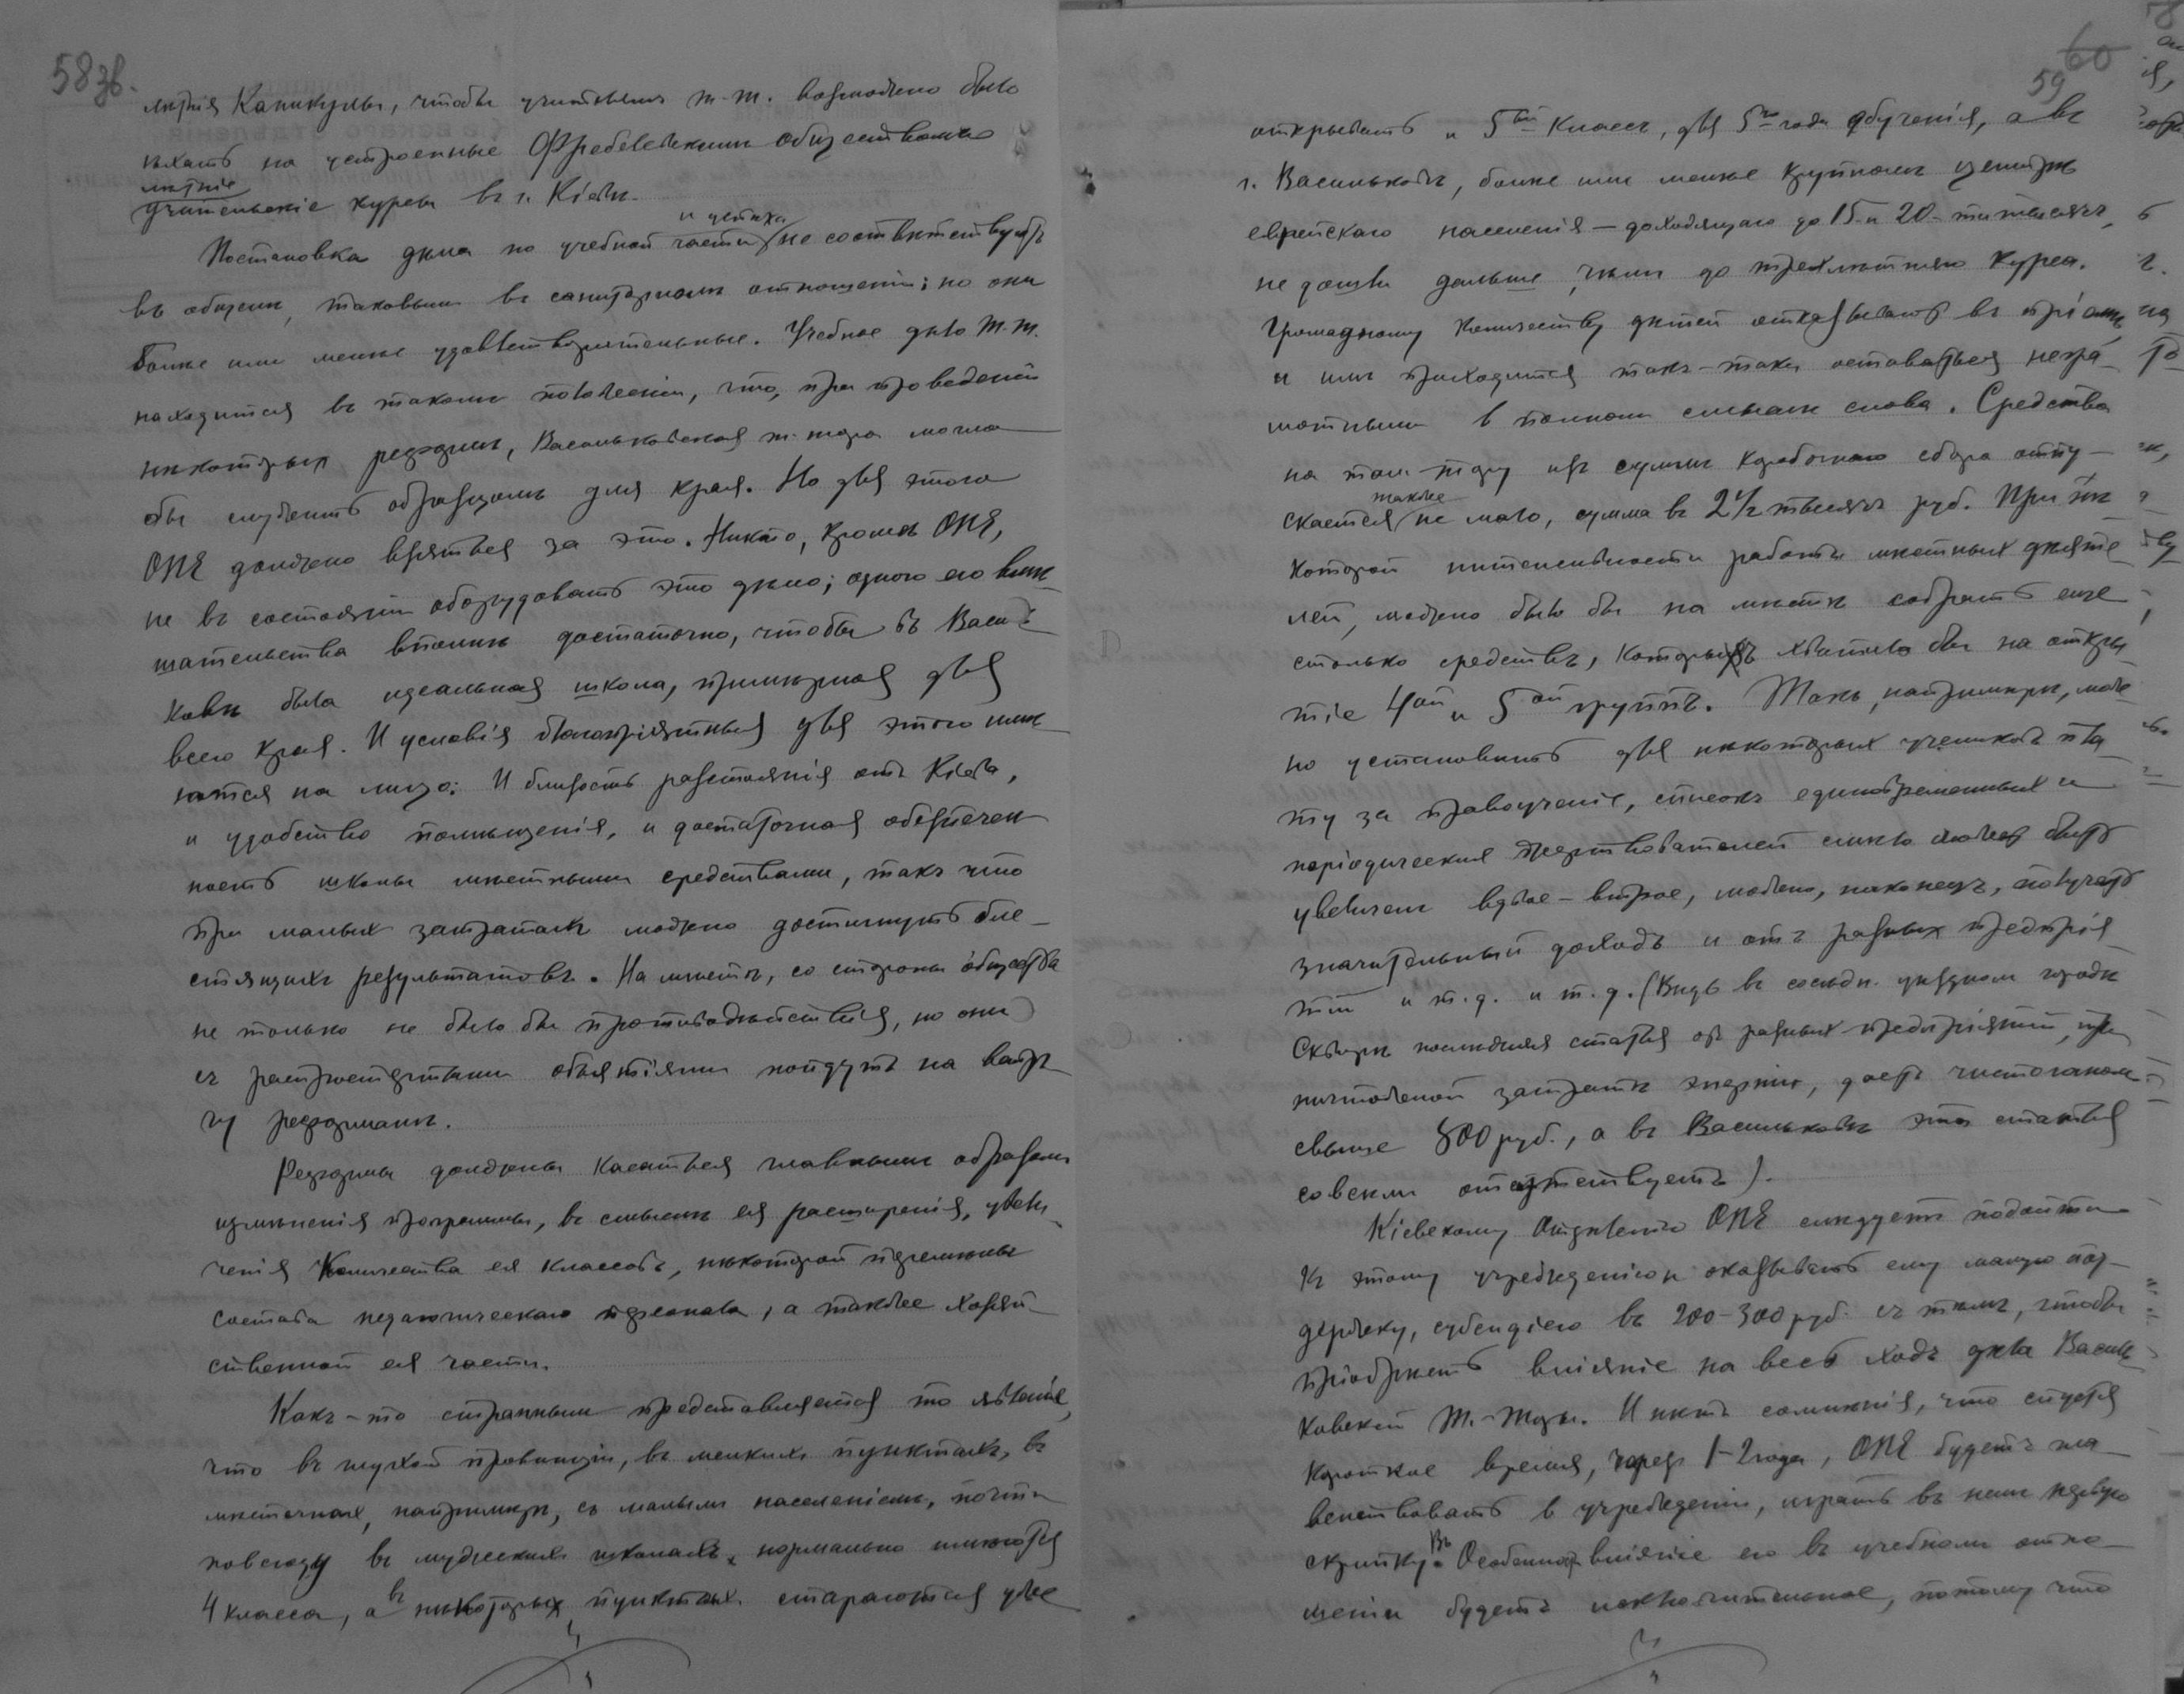 58 зв.
лѣтнія Каникулы, чтобы учителямъ т.-т. возможно было
поѣхать на устроенные Фребелевскимъ обществомъ
лѣтніе
учительскіе курсы въ г. Кіевѣ.
и успѣха
Постановка дѣла по учебной части не соотвѣтствуютъ
въ общемъ, таковымъ въ санитарномъ отношеніи; но они
болѣе или менѣе удовлетворительные. Учебное дѣло Т.-Т.
находится въ такомъ положеніи, что, при проведеніи
нѣкоторыхъ реформъ, Васильковская т.-тора могла
бы служить образцомъ для края. Но для этого
ОПЕ должно взяться за это. Никто, кромѣ ОПЕ,
не въ состояніи оборудовать это дѣло; одного его вмѣ-
шательства вполнѣ достаточно, чтобы въ Василь-
ковѣ была идеальная школа, примѣрная для
всего края. И условія благопріятныя для этого имѣ-
ются на лицо: И близость разстоянія отъ Кіева,
и удобство помѣщенія, и достаточная обезпечен-
ность школы мѣстными средствами, такъ что
при малыхъ затратахъ можно достигнуть бле-
стящихъ результатовъ. На мѣстѣ, со стороны общества
не только не было бы противодѣйствія, но они
съ распростертыми объятіями пойдутъ на встрѣ-
чу реформамъ.
Реформы должны касаться главнымъ образомъ
измѣненія программы, въ смыслѣ ея расширенія, увели-
ченія Количества ея классовъ, нѣкоторой перемѣны
состава педагогическаго персонала, а также хозяй-
ственной ея части.
Какъ-то страннымъ представляется то явленіе,
что въ глухой провинціи, въ мелкихъ пунктахъ, въ
мѣстечкахъ, напримѣръ, съ малымъ населеніемъ, почти
повсюду въ мужскихъ школахъ, нормально имѣются
4 класса, а въ нѣкоторых пунктах стараются уже
60
59
открывать и 5ый Классъ, для 5го года обученія, а въ
г. Васильковѣ, болѣе или менѣе крупномъ центрѣ
еврейскаго населенія — доходящаго до 15-и 20-ти тысячъ,
не дошли дальше, чѣмъ до трехлѣтняго курса.
Громадному количеству дѣтей отказываютъ въ пріемѣ
и имъ приходится такъ-таки оставаться негра-
мотными в полномъ смыслѣ слова. Средства
на талм-тору изъ суммъ коробочнаго сбора отпу-
также
скается не мало, сумма въ 2½ тысячъ руб. При нѣ-
которой интенсивности работы мѣстныхъ дѣяте-
лей, можно было бы на мѣстѣ собрать еще
столько средствъ, которыхъ хватило бы на откры-
тіе 4ой и 5ой группъ. Такъ, напримѣръ, мож-
но установить для нѣкоторыхъ учениковъ пла-
ту за правоученіе, списокъ единовременныхъ и
періодическихъ жертвователей смѣло можетъ быть
увеличенъ вдвое-втрое, можно, наконецъ, получать
значительный доходъ и отъ разныхъ предпрія-
тій и т.д. и т.д. (Видъ въ сосѣдн. уѣздномъ городѣ
Сквирѣ послѣдняя статья отъ разныхъ предпріятій, при
ничтожной затратѣ энергіи, даетъ чистоганомъ
свыше 500 руб., а въ Васильковѣ эта статья
совсѣмъ отсутствуетъ).
Кіевскому Отдѣленію ОПЕ слѣдуетъ подойти
къ этому учрежденію и оказывать ему малую под-
держку, субсидіею въ 200-300 руб. съ тѣмъ, чтобы
пріобрѣсть вліяніе на весь ходъ дѣла Василь-
ковской Т.-Торы. И нѣтъ сомнѣнія, что спустя
Короткое время, черезъ 1-2 года, ОПЕ будетъ гла-
венствовать в учрежденіи, играть въ немъ первую
скрипку. Въ Особенности вліяніе его въ учебномъ отно-
шеніи будетъ исключительное, потому что